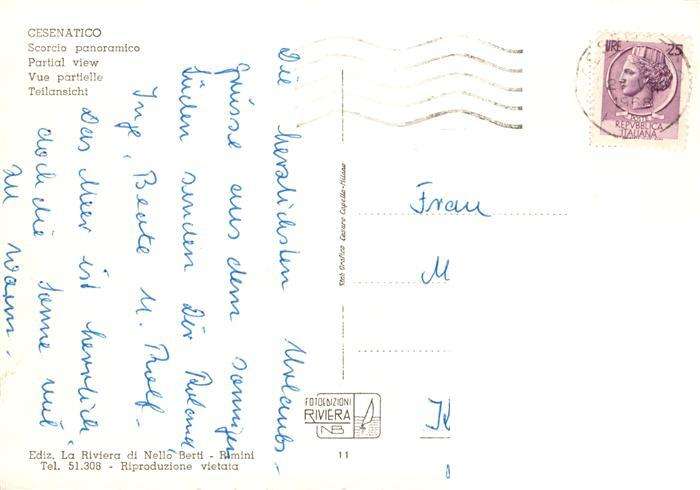 CESENATICO
Scorcio panoramico
Partial view
Vue partielle
Teilansicht
Die herzlichsten Urlaubs-
grüsse aus dem sonnigen
Süden senden Dir Roland
Inge, Beate u. Rolf.
Das Meer ist herrlich,
doch die Sonne
zu warm.
Stab Grafico Cesare Capello-Milano
LIRE 25
REPVBBLICA
ITALIANA
Frau
M
K
FOTOEDIZIONI
RIVIERA
NB
Ediz. La Riviera di Nello Berti - Rimini
Tel. 51.308 - Riproduzione vietata
11